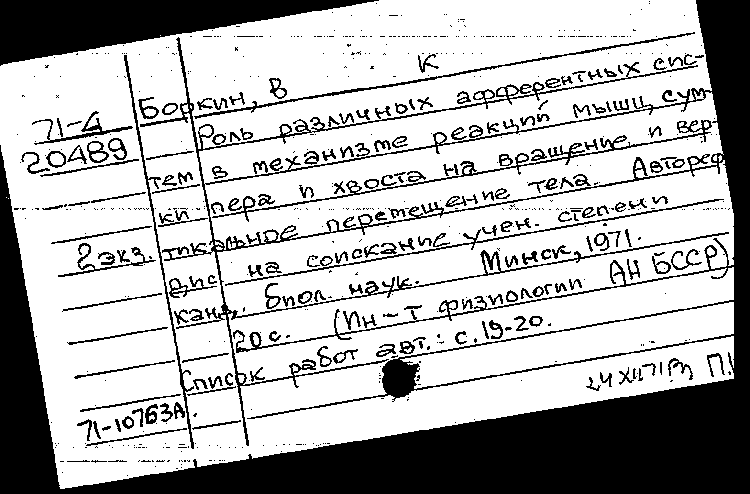 71-4
20489
Боркин, В К
Роль различных афферентных сис-
тем в механизме реакций мышц, сум-
ки пера и хвоста на вращение и вер-
2 экз. тикальное перемещение тела. Автореф
дис. на соискание учен. степени
канд. биол. наук. Минск, 1971.
20 с. (Ин-т физиологии АН БССР).
Список работ авт.: с. 19-20.
71-10763А.